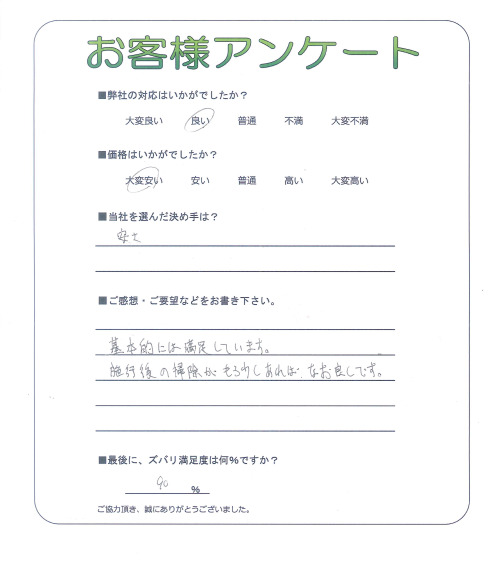 お客様アンケート
■弊社の対応はいかがでしたか？
大変良い 良い 普通 不満 大変不満
■価格はいかがでしたか？
大変安い 安い 普通 高い 大変高い
■当社を選んだ決め手は？
安さ
■ご感想・ご要望などをお書き下さい。
基本的には満足しています。
施行後の掃除がもう少しあれば、なお良しです。
■最後に、ズバリ満足度は何%ですか？
90 %
ご協力頂き、誠にありがとうございました。